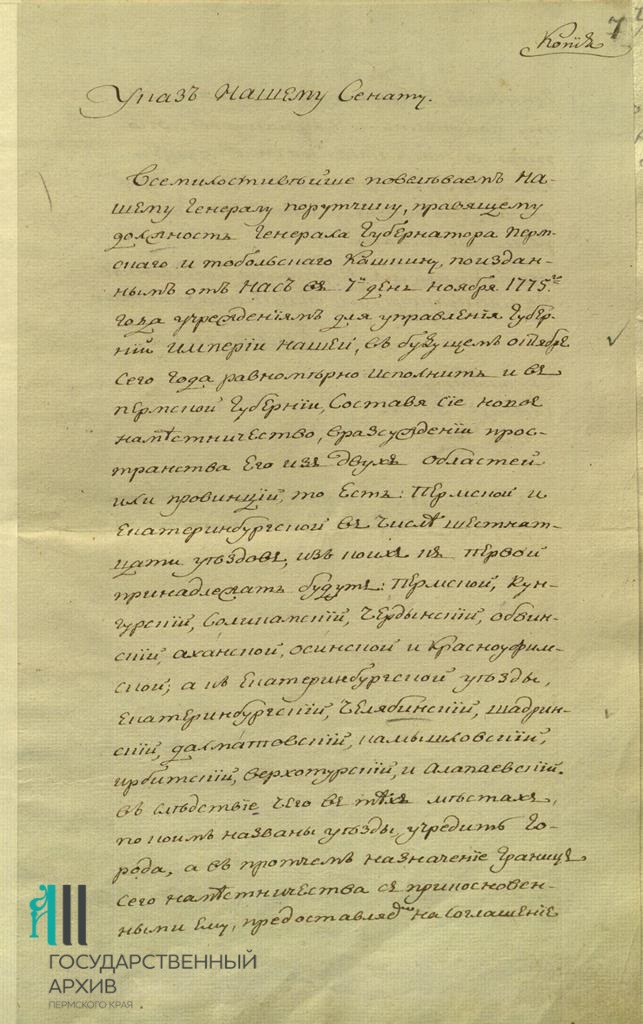 7
Копія
Указъ нашему Сенату.
Всемилостивѣйше повелѣваемъ на-
шему Генералу порутчику, правящему
должность Генерала Губернатора перм-
скаго и тобольскаго Кашкину, поиздан-
нымъ отъ насъ въ 7й день ноября 1775го
года учрежденіямъ для управленія Губер-
ній Имперіи нашей, въ будущемъ октябре
сего года равномѣрно исполнить и въ
пермской Губерніи, Составя сіе новое
намѣстничество, вразсужденіи прос-
транства Его изъ двухъ областей
или провинцій, то Есть: Пермской и
Екатеринбургской въ числѣ шестнат-
цати уѣздовъ, изъ коихъ къ первой
принадлежать будутъ: Пермской, Кун-
гурскій, Соликамскій, Чердынскій, обвин-
скій, аханской, осинской и Красноуфим-
ской; а къ Екатеринбургской уѣзды,
Екатеринбургскій, Челябинскій, шадрин-
скій, далматовскій, камышловскій,
ирбитскій, верхотурскій, и Алапаевскій.
въ слѣдствіе чего въ тѣхъ мѣстахъ,
по коимъ названы уѣзды, учредить Го-
рода, а въ протчемъ назначеніе Границъ
сего намѣстничества съ прикосновен-
ными ему, предоставляемъ на соглашеніе
ГОСУДАРСТВЕННЫЙ
АРХИВ
ПЕРМСКОГО КРАЯ